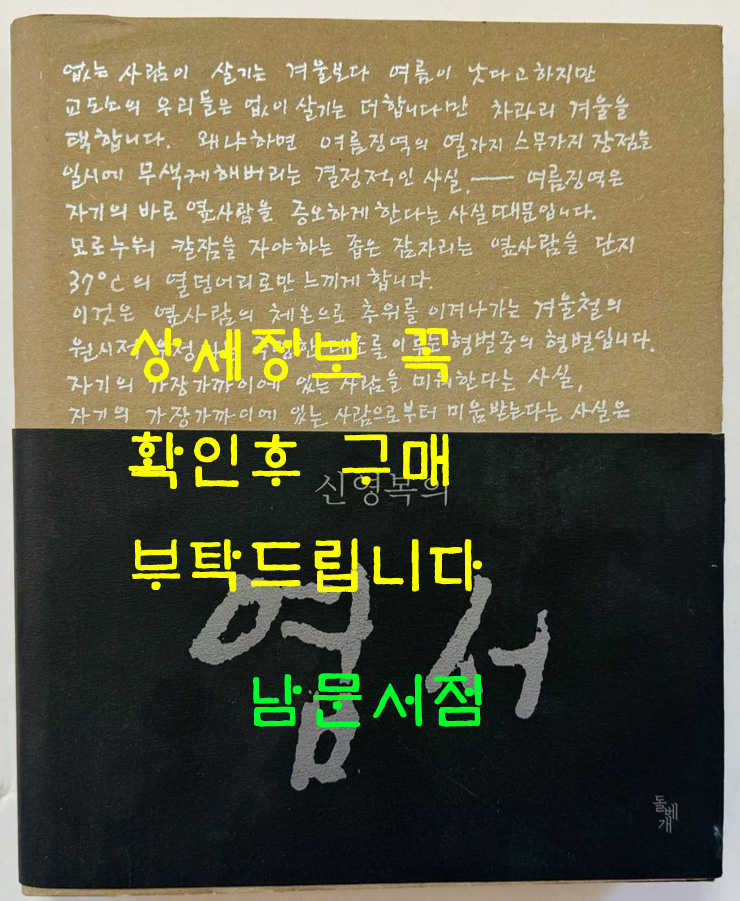 없는 사람이 살기는 겨울보다 여름이 낫다고하지만
교도소의 우리들은 없이 살기는 더합니다만 차라리 겨울을
택합니다. 왜냐하면 여름징역의 열가지 스무가지 장점을
일시에 무색케해버리는 결정적인 사실.── 여름징역은
자기의 바로 옆사람을 증오하게한다는 사실때문입니다.
모로누워 칼잠을 자야하는 좁은 잠자리는 옆사람을 단지
37°C의 열덩어리로만 느끼게 합니다.
이것은 옆사람의 체온으로 추위를 이겨나가는 겨울철의
형벌중의 형벌입니다.
상세정보 꼭
자기의 가장가까이에 있는 사람을 미워한다는 사실,
자기의 가장가까이에 있는 사람으로부터 미움받는다는 사실은
확인후 구매
신영복의
부탁드립니다
엽서
남문서점
돌베개